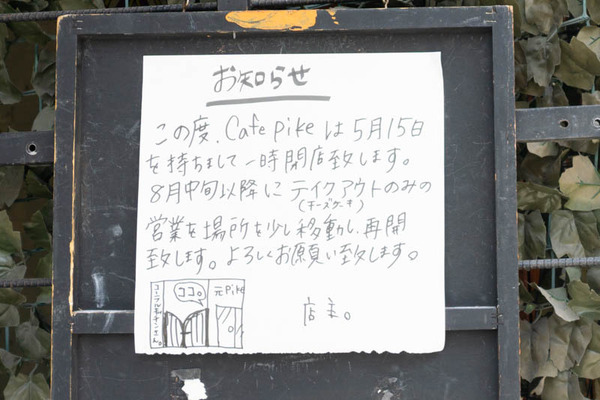 お知らせ
この度、Cafe pikeは5月15日
を持ちまして一時閉店致します。
8月中旬以降にテイクアウトのみの
(チーズケーキ)
営業を場所を少し移動し、再開
致します。よろしくお願い致します。
ココ。
元Pike
店主。